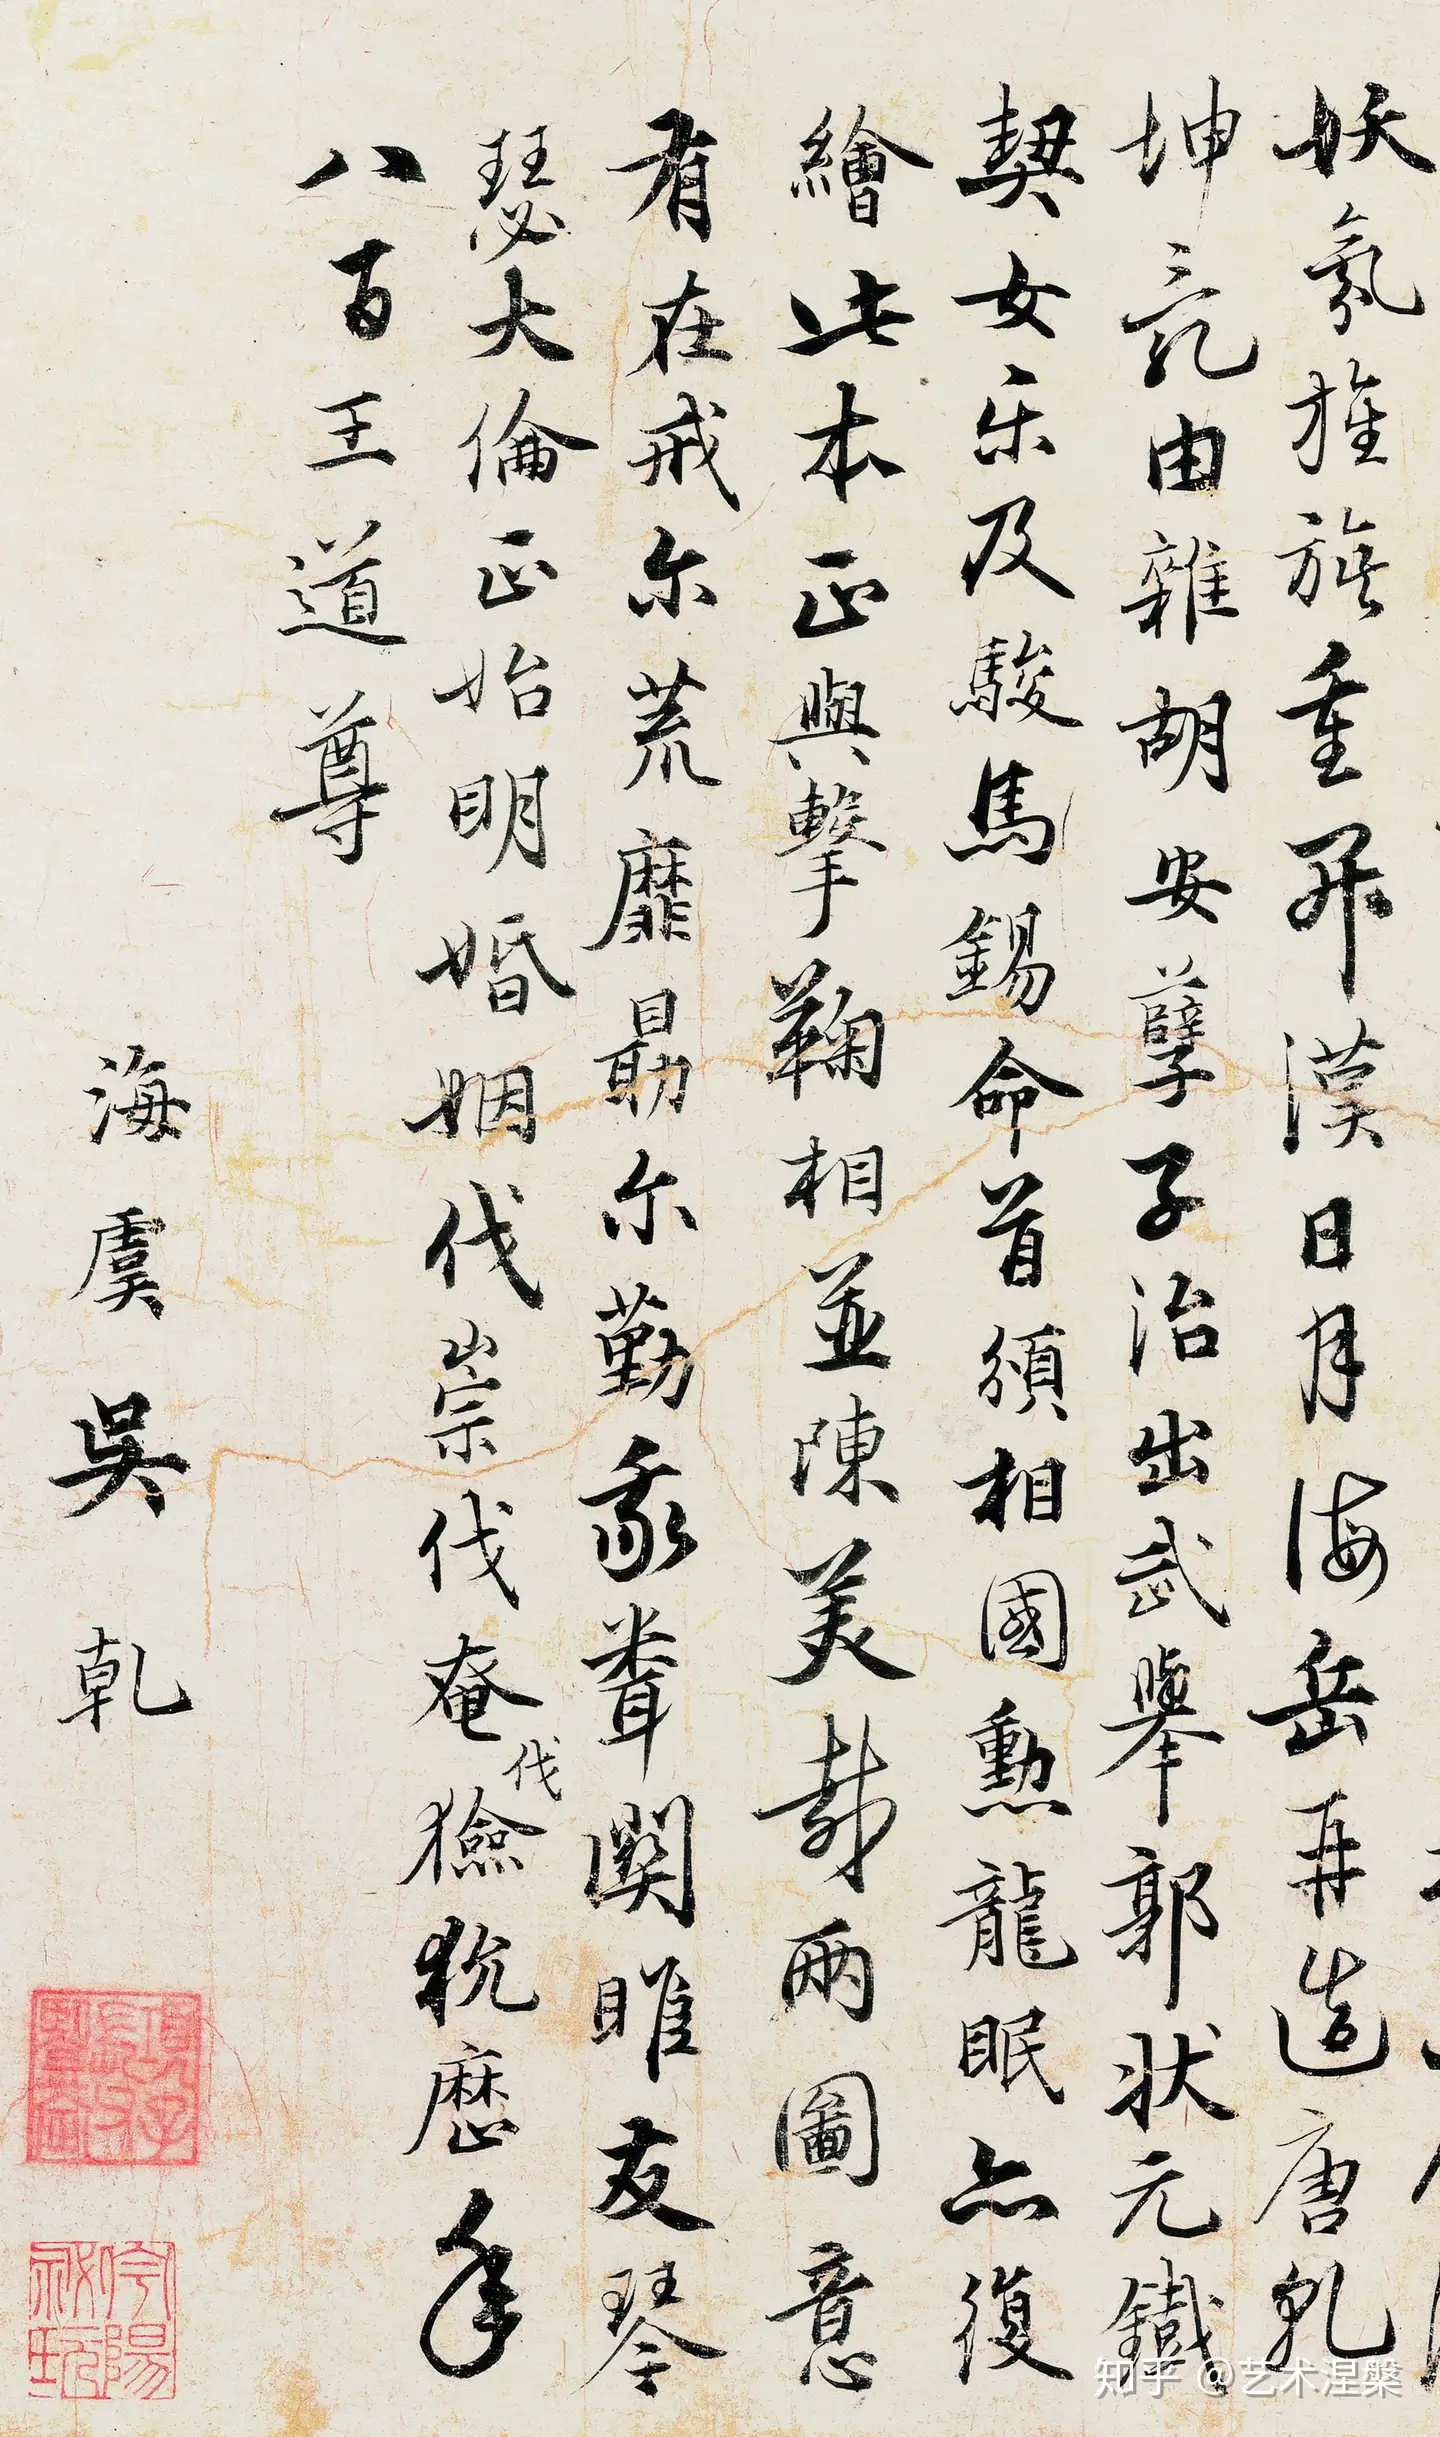 妖氛旌旗重開漢日月海岳再造唐乳
坤氣由雜胡安孽子治出武舉郭狀元鐵
契女乐及駿馬錫命首頒相國勲龍眠亦復
繪此本正與擊鞠相並陳美哉兩圖意
有在戒尔荒靡勗尔勤豕聾関雎友琴
瑟大倫正始明婚姻伐崇伐奄伐獫狁歷年
八百王道尊
海虞吳乹
知乎 @艺术涅槃